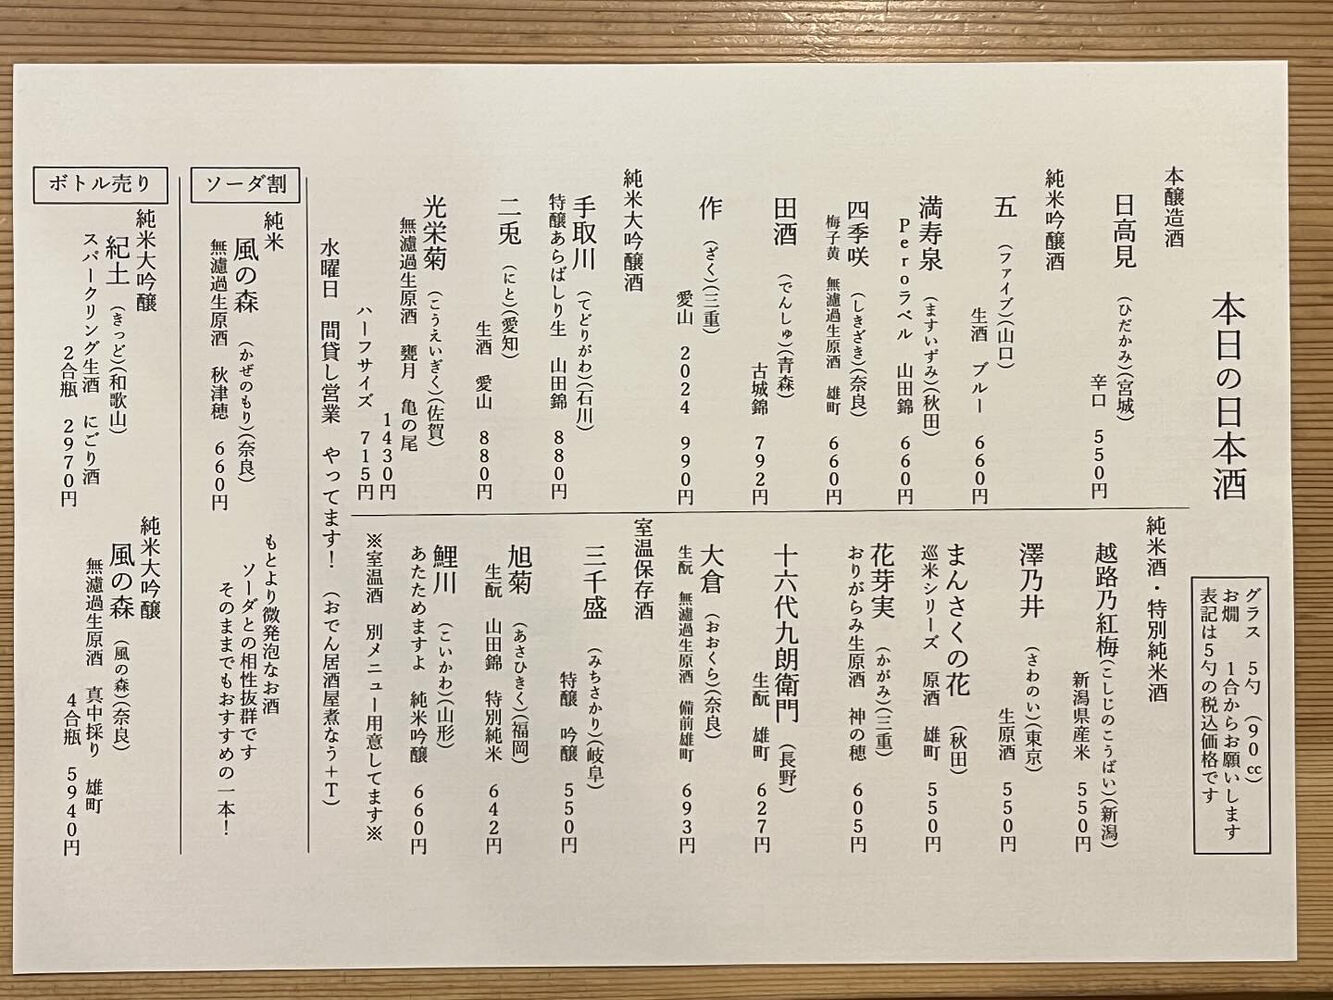 本日の日本酒
グラス　5勺　（90cc）
お燗　1合からお願いします
表記は5勺の税込価格です
本醸造酒
日高見　（ひだかみ）（宮城）
辛口　550円
純米吟醸酒
五　（ファイブ）（山口）
生酒　ブルー　660円
満寿泉　（ますいずみ）（秋田）
Peroラベル　山田錦　660円
四季咲　（しきざき）（奈良）
梅子黄　無濾過生原酒　雄町　660円
田酒　（でんしゅ）（青森）
古城錦　792円
作　（ざく）（三重）
愛山　2024　990円
純米大吟醸酒
手取川　（てどりがわ）（石川）
特醸あらばしり生　山田錦　880円
二兎　（にと）（愛知）
生酒　愛山　880円
光栄菊　（こうえいぎく）（佐賀）
無濾過生原酒　甕月　亀の尾
1430円
ハーフサイズ　715円
純米酒・特別純米酒
越路乃紅梅（こしじのこうばい）（新潟）
新潟県産米　550円
澤乃井　（さわのい）（東京）
生原酒　550円
まんさくの花　（秋田）
巡米シリーズ　原酒　雄町　550円
花芽実　（かがみ）（三重）
おりがらみ生原酒　神の穂　605円
十六代九朗衛門　（長野）
生酛　雄町　627円
大倉　（おおくら）（奈良）
生酛　無濾過生原酒　備前雄町　693円
室温保存酒
三千盛　（みちさかり）（岐阜）
特醸　吟醸　550円
旭菊　（あさひきく）（福岡）
生酛　山田錦　特別純米　642円
鯉川　（こいかわ）（山形）
あたためますよ　純米吟醸　660円
※室温酒　別メニュー用意してます※
水曜日　間貸し営業　やってます！　（おでん居酒屋煮なう＋T）
ソーダ割
純米
風の森　（かぜのもり）（奈良）
無濾過生原酒　秋津穂　660円
もとより微発泡なお酒
ソーダとの相性抜群です
そのままでもおすすめの一本！
ボトル売り
純米大吟醸
紀土　（きっど）（和歌山）
スパークリング生酒　にごり酒
2合瓶　2970円
純米大吟醸
風の森　（風の森）（奈良）
無濾過生原酒　真中採り　雄町
4合瓶　5940円